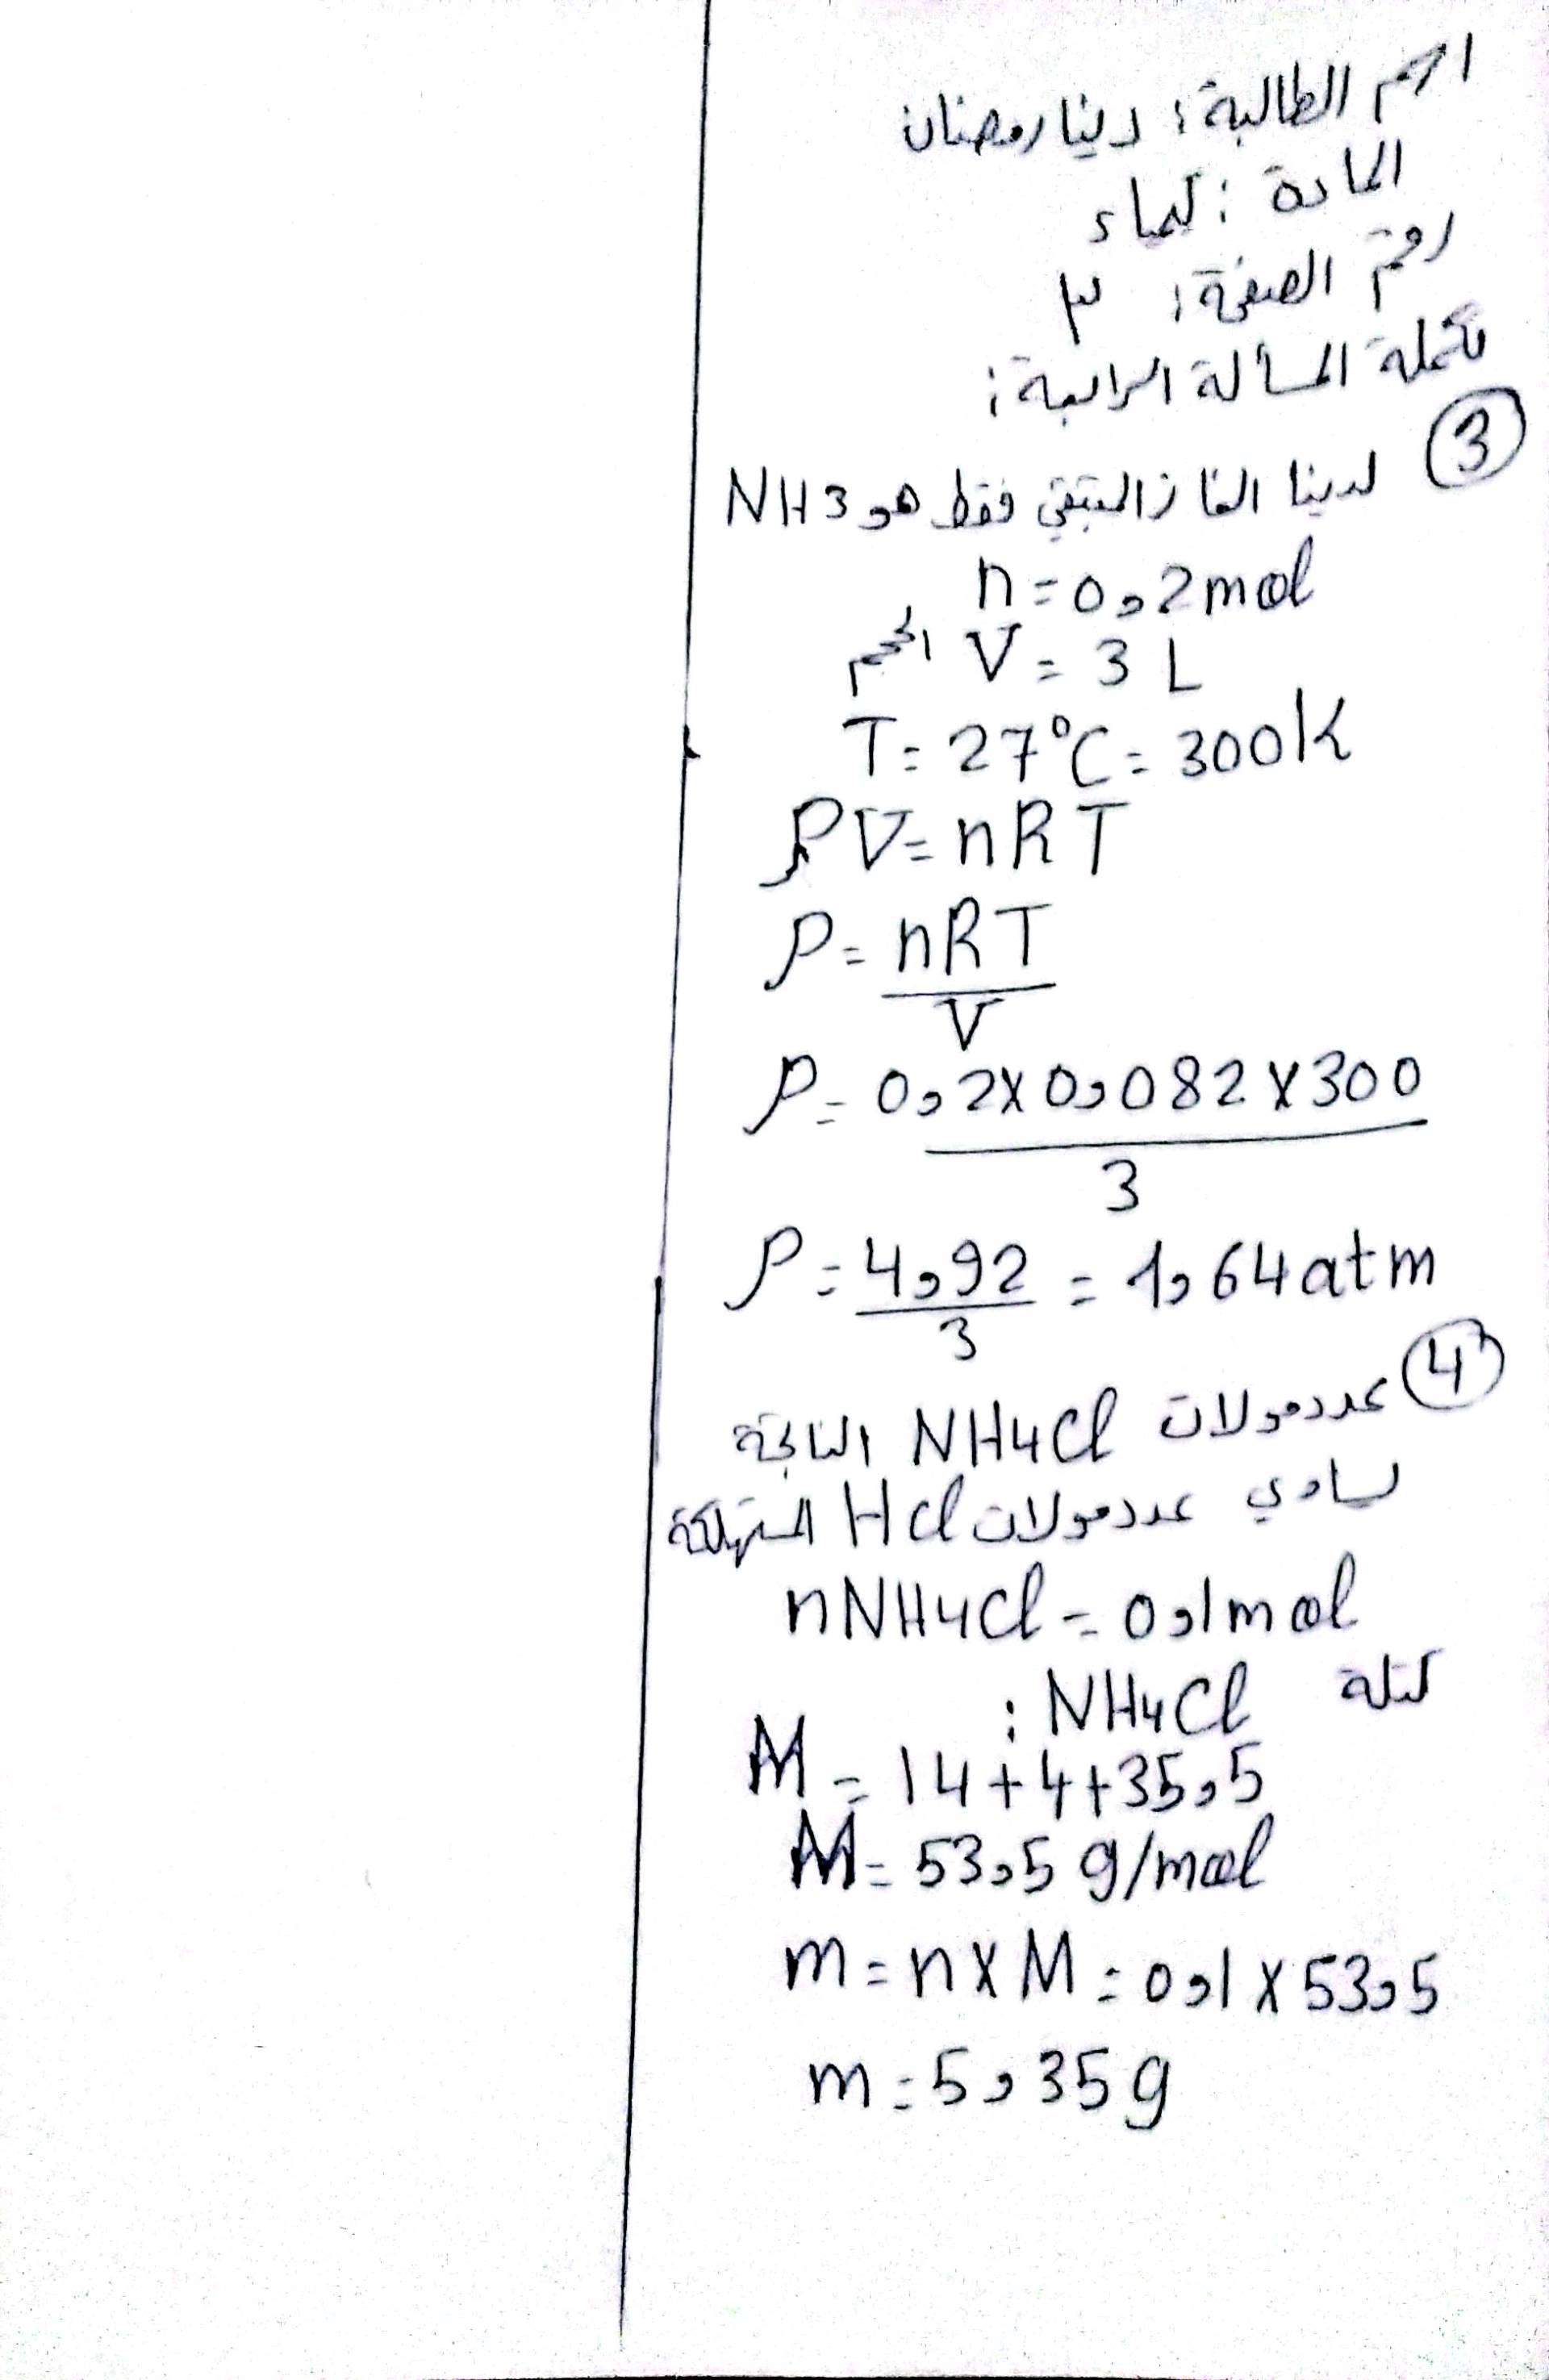 اسم الطالبة: دينا رمضان
المادة: كيمياء
رقم الصفحة: ٣
تكملة المسألة الرابعة:
③ لدينا الغاز المتبقي فقط هو NH3
n = 0,2 mol
الحجم V = 3 L
T = 27°C = 300K
PV = nRT
P = nRT
V
P = 0,2 x 0,082 x 300
3
P = 4,92 = 1,64 atm
3
④ عدد مولات NH4Cl الناتجة
تساوي عدد مولات HCl المستهلكة
nNH4Cl = 0,1 mol
كتلة NH4Cl :
M = 14 + 4 + 35,5
M = 53,5 g/mol
m = n x M = 0,1 x 53,5
m = 5,35 g